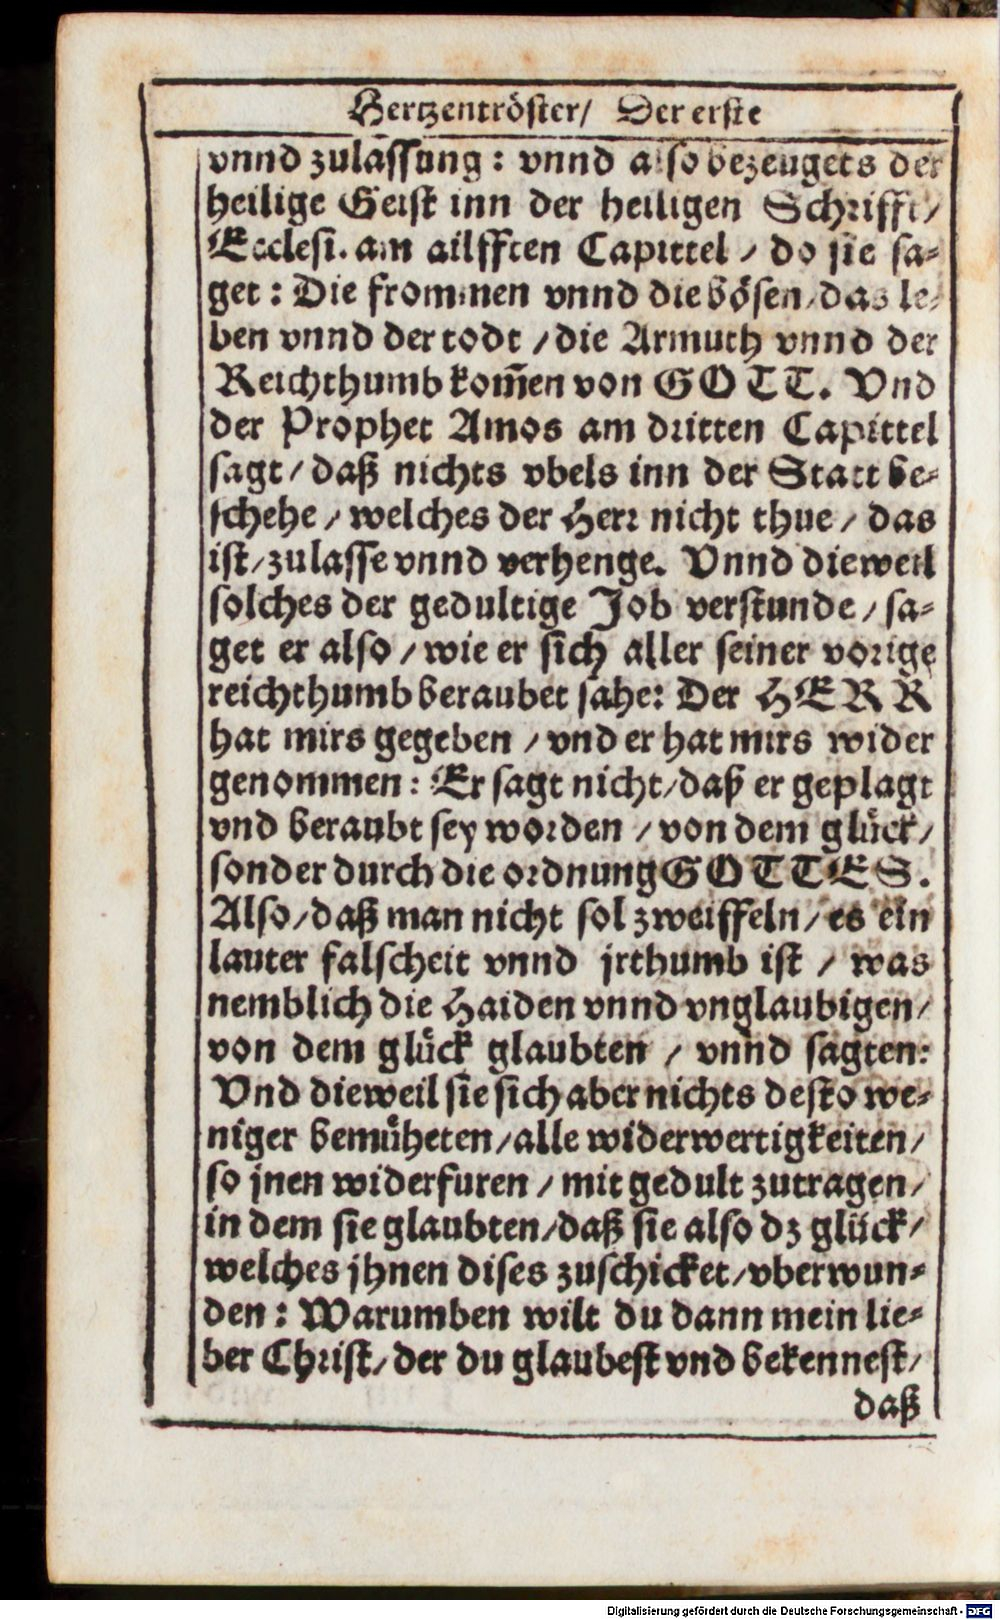 Hertzentröster/ Der erste
vnnd zulassung: vnnd also bezeugets der
heilige Geist inn der heiligen Schrifft/
Ecclesi. am ailfften Capittel / do sie sa⸗
get: Die frommen vnnd die bösen/das le⸗
ben vnnd der todt / die Armuth vnnd der
Reichthumb kom̃en von GOTT. Vnd
der Prophet Amos am dritten Capittel
sagt/ daß nichts vbels inn der Statt be⸗
schehe / welches der Herr nicht thue / das
ist/zulasse vnnd verhenge. Vnnd dieweil
solches der gedultige Job verstunde / sa⸗
get er also / wie er sich aller seiner vorige
reichthumb beraubet sahe: Der HERR
hat mirs gegeben / vnd er hat mirs wider
genommen: Er sagt nicht/daß er geplagt
vnd beraubt sey worden / von dem gluͤck/
sonder durch die ordnung GOTTES.
Also/daß man nicht sol zweiffeln/ es ein
lauter falscheit vnnd jrthumb ist / was
nemblich die Haiden vnnd vnglaubigen/
von dem gluͤck glaubten / vnnd sagten:
Vnd dieweil sie sich aber nichts desto we⸗
niger bemuͤheten/alle widerwertigkeiten/
so jnen widerfuren / mit gedult zutragen/
in dem sie glaubten/daß sie also dz gluͤck/
welches jhnen dises zuschicket/vberwun⸗
den: Warumben wilt du dann mein lie⸗
ber Christ/ der du glaubest vnd bekennest/
daß
Digitalisierung gefördert durch die Deutsche Forschungsgemeinschaft - DFG